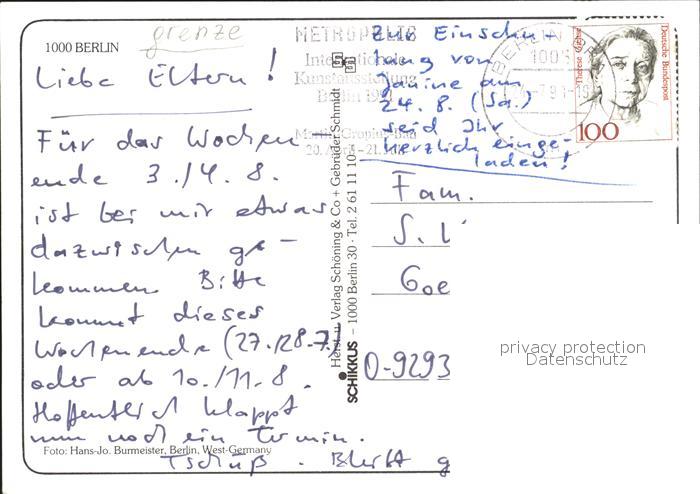 grenze
1000 BERLIN
Liebe Eltern!
Für das Wochen
ende 3./4. 8.
ist bei mir etwas
dazwischen ge-
kommen Bitte
kommt dieses
Wochenende (27./28.7.)
oder ab 10./11.8.
Hoffentlich klappt
nun noch ein Termin.
Foto: Hans-Jo. Burmeister, Berlin, West-Germany
Tschüß. Bleibt g
Herst. u. Verlag Schöning & Co + Gebrüder Schmidt
SCHIKKUS – 1000 Berlin 30 · Tel. 2 61 11 10
METROPOLIS
Internationale
Kunstausstellung
Berlin 1991
Martin-Gropius-Bau
BERLIN
Zur Einschu-
lung von
Janine am
24. 8. (Sa.)
seid Ihr
herzlich einge-
laden!
Deutsche Bundespost
Therese Giehse
100
Fam.
S. L
Goe
O-9293
privacy protection
Datenschutz